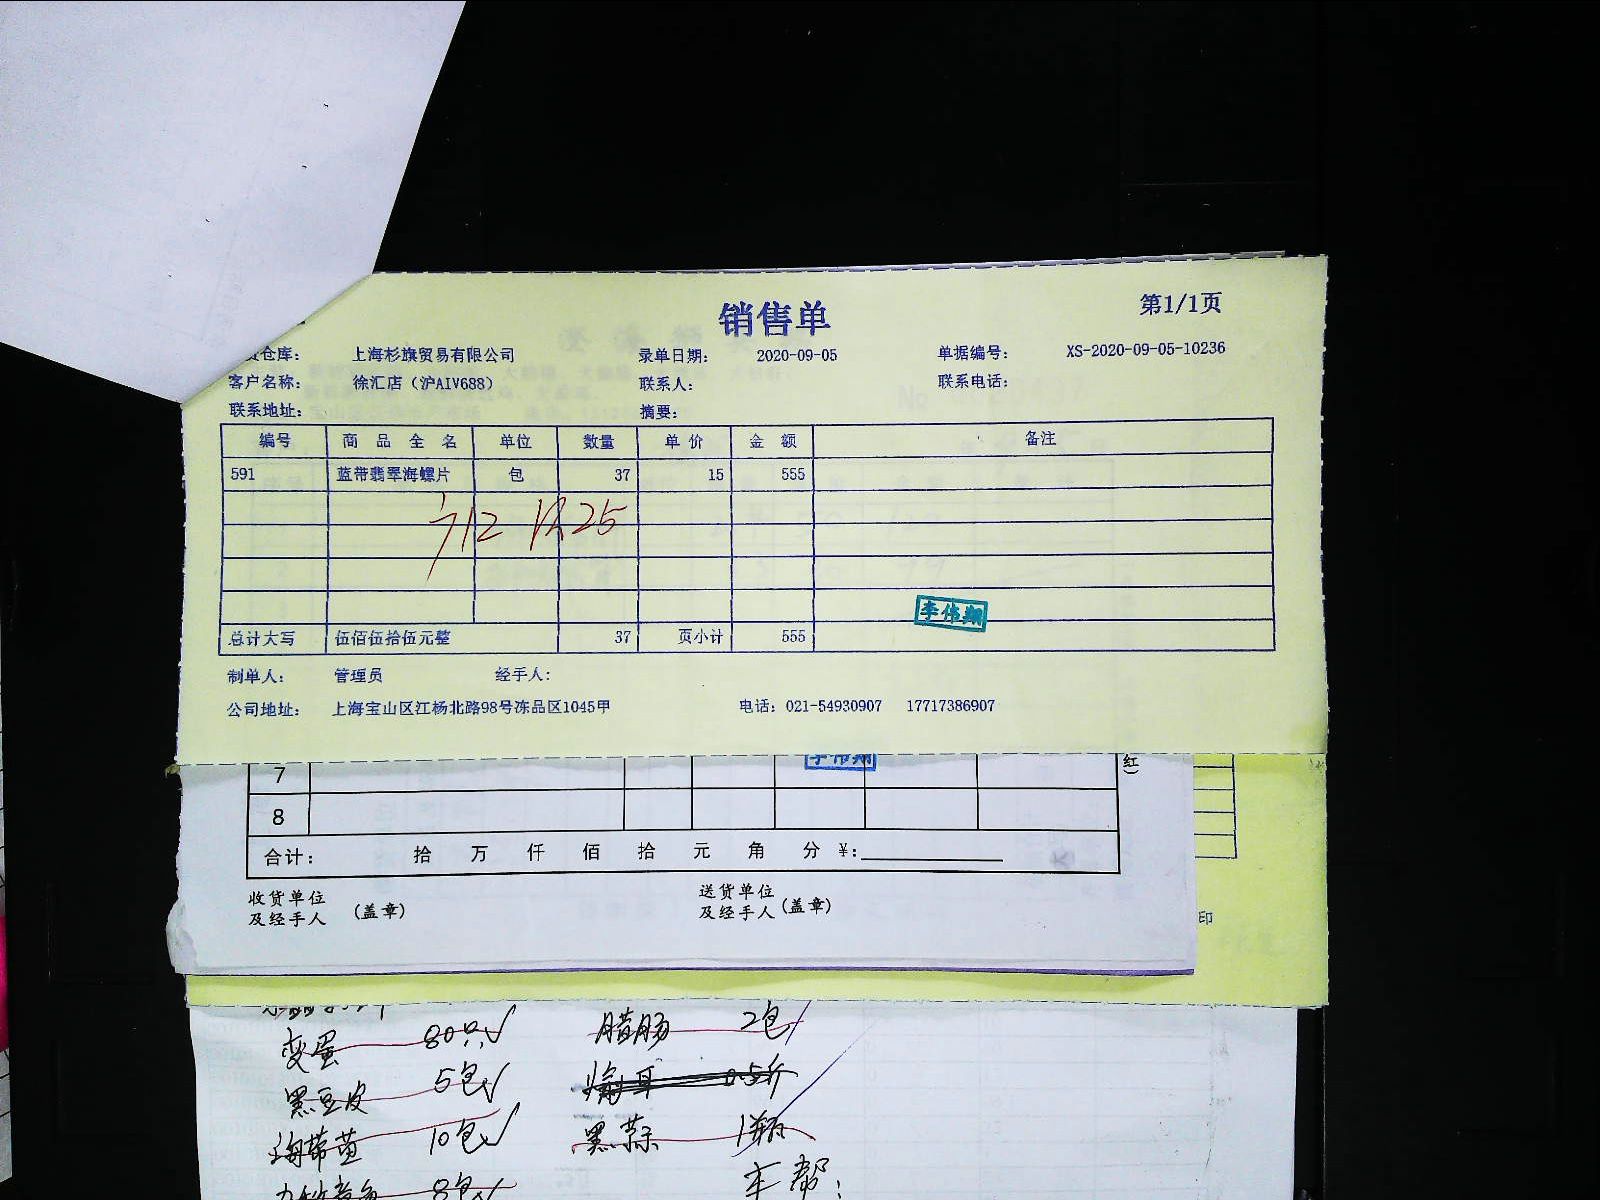 销售单
第1/1页
仓库： 上海杉旗贸易有限公司 录单日期： 2020-09-05 单据编号： XS-2020-09-05-10236
客户名称： 徐汇店（沪AIV688） 联系人： 联系电话：
联系地址： 摘要：
编号 商品全名 单位 数量 单价 金额 备注
591 蓝带翡翠海螺片 包 37 15 555
712 1225
李伟翔
总计大写 伍佰伍拾伍元整 37 页小计 555
制单人： 管理员 经手人：
公司地址： 上海宝山区江杨北路98号冻品区1045甲 电话：021-54930907 17717386907
7 李伟翔
红）
8
合计： 拾 万 仟 佰 拾 元 角 分 ￥：
收货单位 送货单位
及经手人 （盖章） 及经手人（盖章）
印
变蛋 80只 腊肠 2包
黑豆皮 5包
10包 黑蒜 1瓶
8包